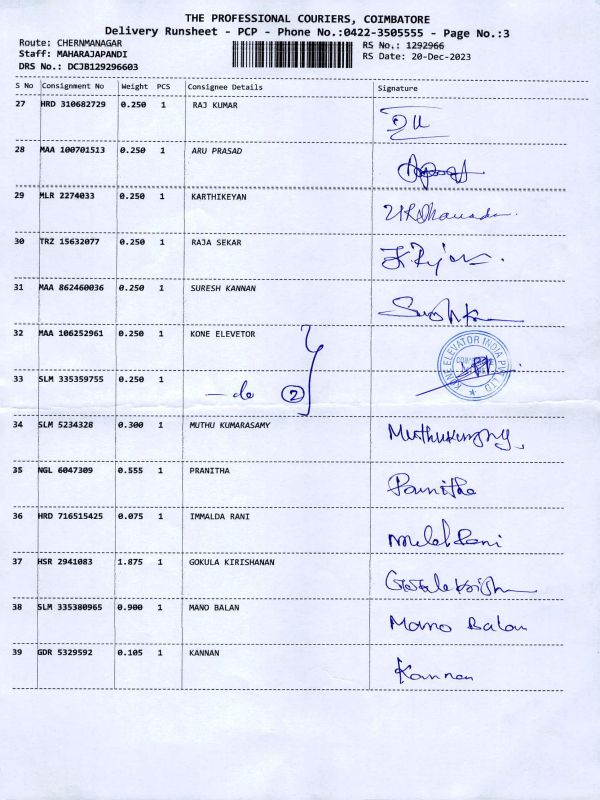 THE PROFESSIONAL COURIERS, COIMBATORE
Delivery Runsheet - PCP - Phone No.:0422-3505555 - Page No.:3
Route: CHERNMANAGAR RS No.: 1292966
Staff: MAHARAJAPANDI RS Date: 20-Dec-2023
DRS No.: DCJB129296603
S No Consignment No Weight PCS Consignee Details Signature
27 HRD 310682729 0.250 1 RAJ KUMAR
28 MAA 100701513 0.250 1 ARU PRASAD
29 MLR 2274033 0.250 1 KARTHIKEYAN
30 TRZ 15632077 0.250 1 RAJA SEKAR
31 MAA 862460036 0.250 1 SURESH KANNAN
32 MAA 106252961 0.250 1 KONE ELEVETOR
KONE ELEVATOR INDIA PVT LTD
33 SLM 335359755 0.250 1 —do 2
34 SLM 5234328 0.300 1 MUTHU KUMARASAMY
35 NGL 6047309 0.555 1 PRANITHA
36 HRD 716515425 0.075 1 IMMALDA RANI
37 HSR 2941083 1.875 1 GOKULA KIRISHANAN
38 SLM 335380965 0.900 1 MANO BALAN Mano Balan
39 GDR 5329592 0.105 1 KANNAN Kannan